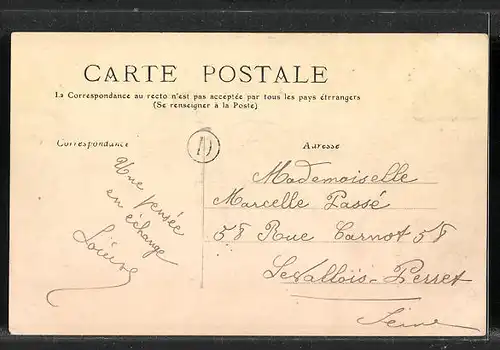 CARTE POSTALE
La Correspondance au recto n'est pas acceptée par tous les pays étrrangers
(Se renseigner à la Poste)
Correspondance
Adresse
Une pensée
en échange
Mademoiselle
Marcelle Passé
58 Rue Carnot 58
Levallois-Perret
Seine